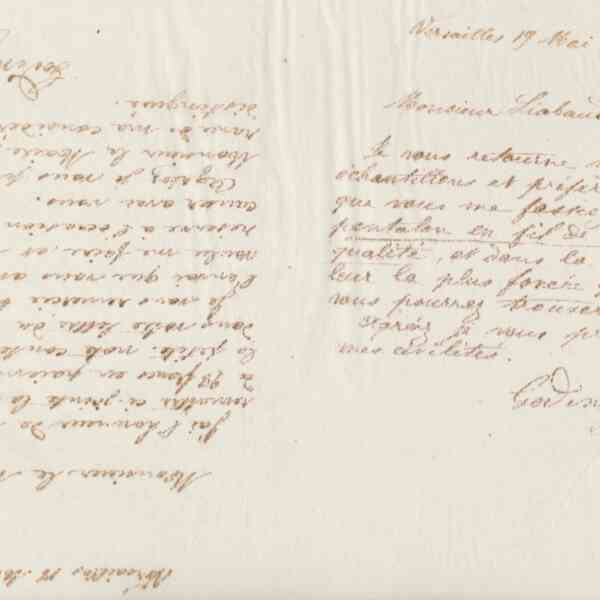 Versailles 19 Mai
Monsieur Liabaud
Je vous retourne
échantillons et préfer
que vous me fassie
pantalon en fil de
qualité, et dans la
leur la plus foncée
vous pourrez trouver
Agréez je vous pr
mes civilités.
Godin
Versailles 18
Monsieur le M
J'ai l'honneur de
remettre ci-jointe la
à 93 francs en paiem
la petite note conte
dans votre lettre du
Je vous remercie
l'envoi que vous av
me faire, et
réserve à l'occasion
causer avec vous.
Agréez, je vous p
Monsieur le Maire,
rance de ma considér
distinguée.
Godin